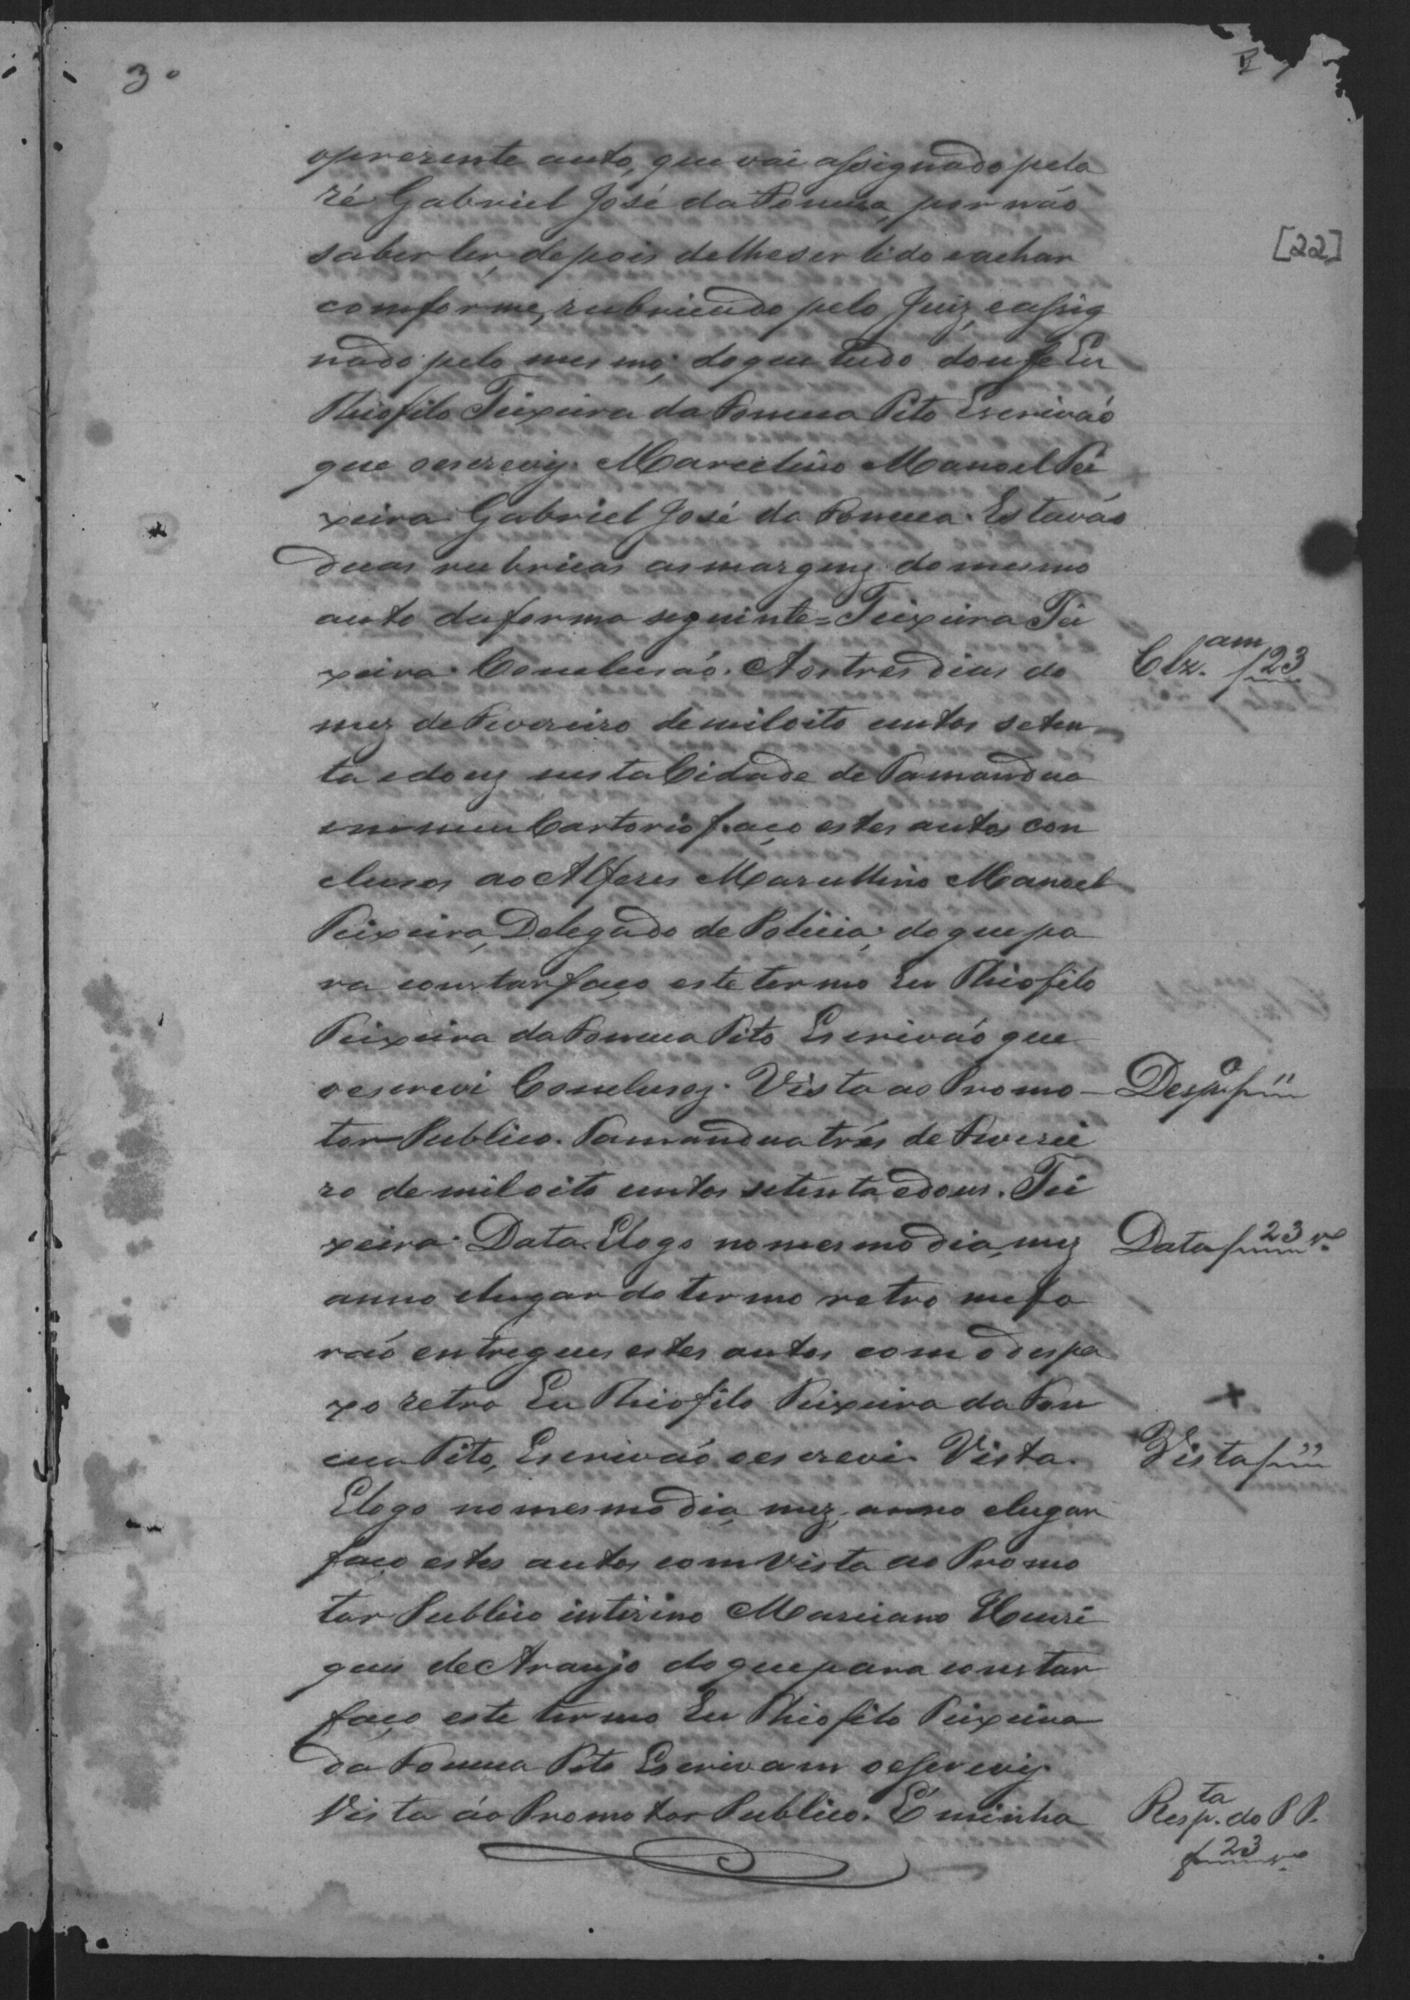 3º
[22]
o prezente auto, que vai assignado pela
ré Gabriel José da Fonseca, por não
saber ler, depois de lhe ser lido e achar
comforme, rubricado pelo Juiz, e assig
nado pelo mesmo; do que tudo dou fe Eu
Thiofilo Teixeira da Fonseca Pito Escrivão
que o escrevy. Marcelino Manoel Tei
xeira. Gabriel José da Fonceca. Estavão
duas rubricas as margeng do mesmo
auto da forma seguinte = Teixeira Tei
xeira. Concluzaó. Aos tres dias do
mez de Fevereiro de mil oito centos seten
ta e doug nesta Cidade de Tamandua
em meu Cartorio faço estes autos con
clusos ao Alferes Marcellino Manoel
Teixeira, Delegado de Policia; do que pa
ra constar faço este termo Eu Thiofilo
Teixeira da Fonceca Pito Escrivaó que
o escrevi Conclusoz. Vista ao Promo-
tor Publico. Tamandua três de Feverei
ro de mil oito centos setenta e dous. Tei
xeira. Data. Elogo no mesmo dia, mez
anno e lugar do termo retro me fo
raó entregues estes autos com o despa
xo retro Eu Thiofilo Teixeira da Fon
ceca Pito, Escrivaó o escrevi. Vista.
Elogo no mesmo dia, mez, anno e lugar
faço estes autos com vista ao Promo
tor Publico interino Marciano Henri
ques de Araujo do que para constar
faço este termo Eu Thiofilo Teixeira
da Fonceca Pito Escrivam o escrevy.
Vista áo Promotor Publico. É minha
Clz.am f 23
Desp.o f ''
Data f 23 vº
Vista f ''
Resp.ta do P P.
f 23 vº